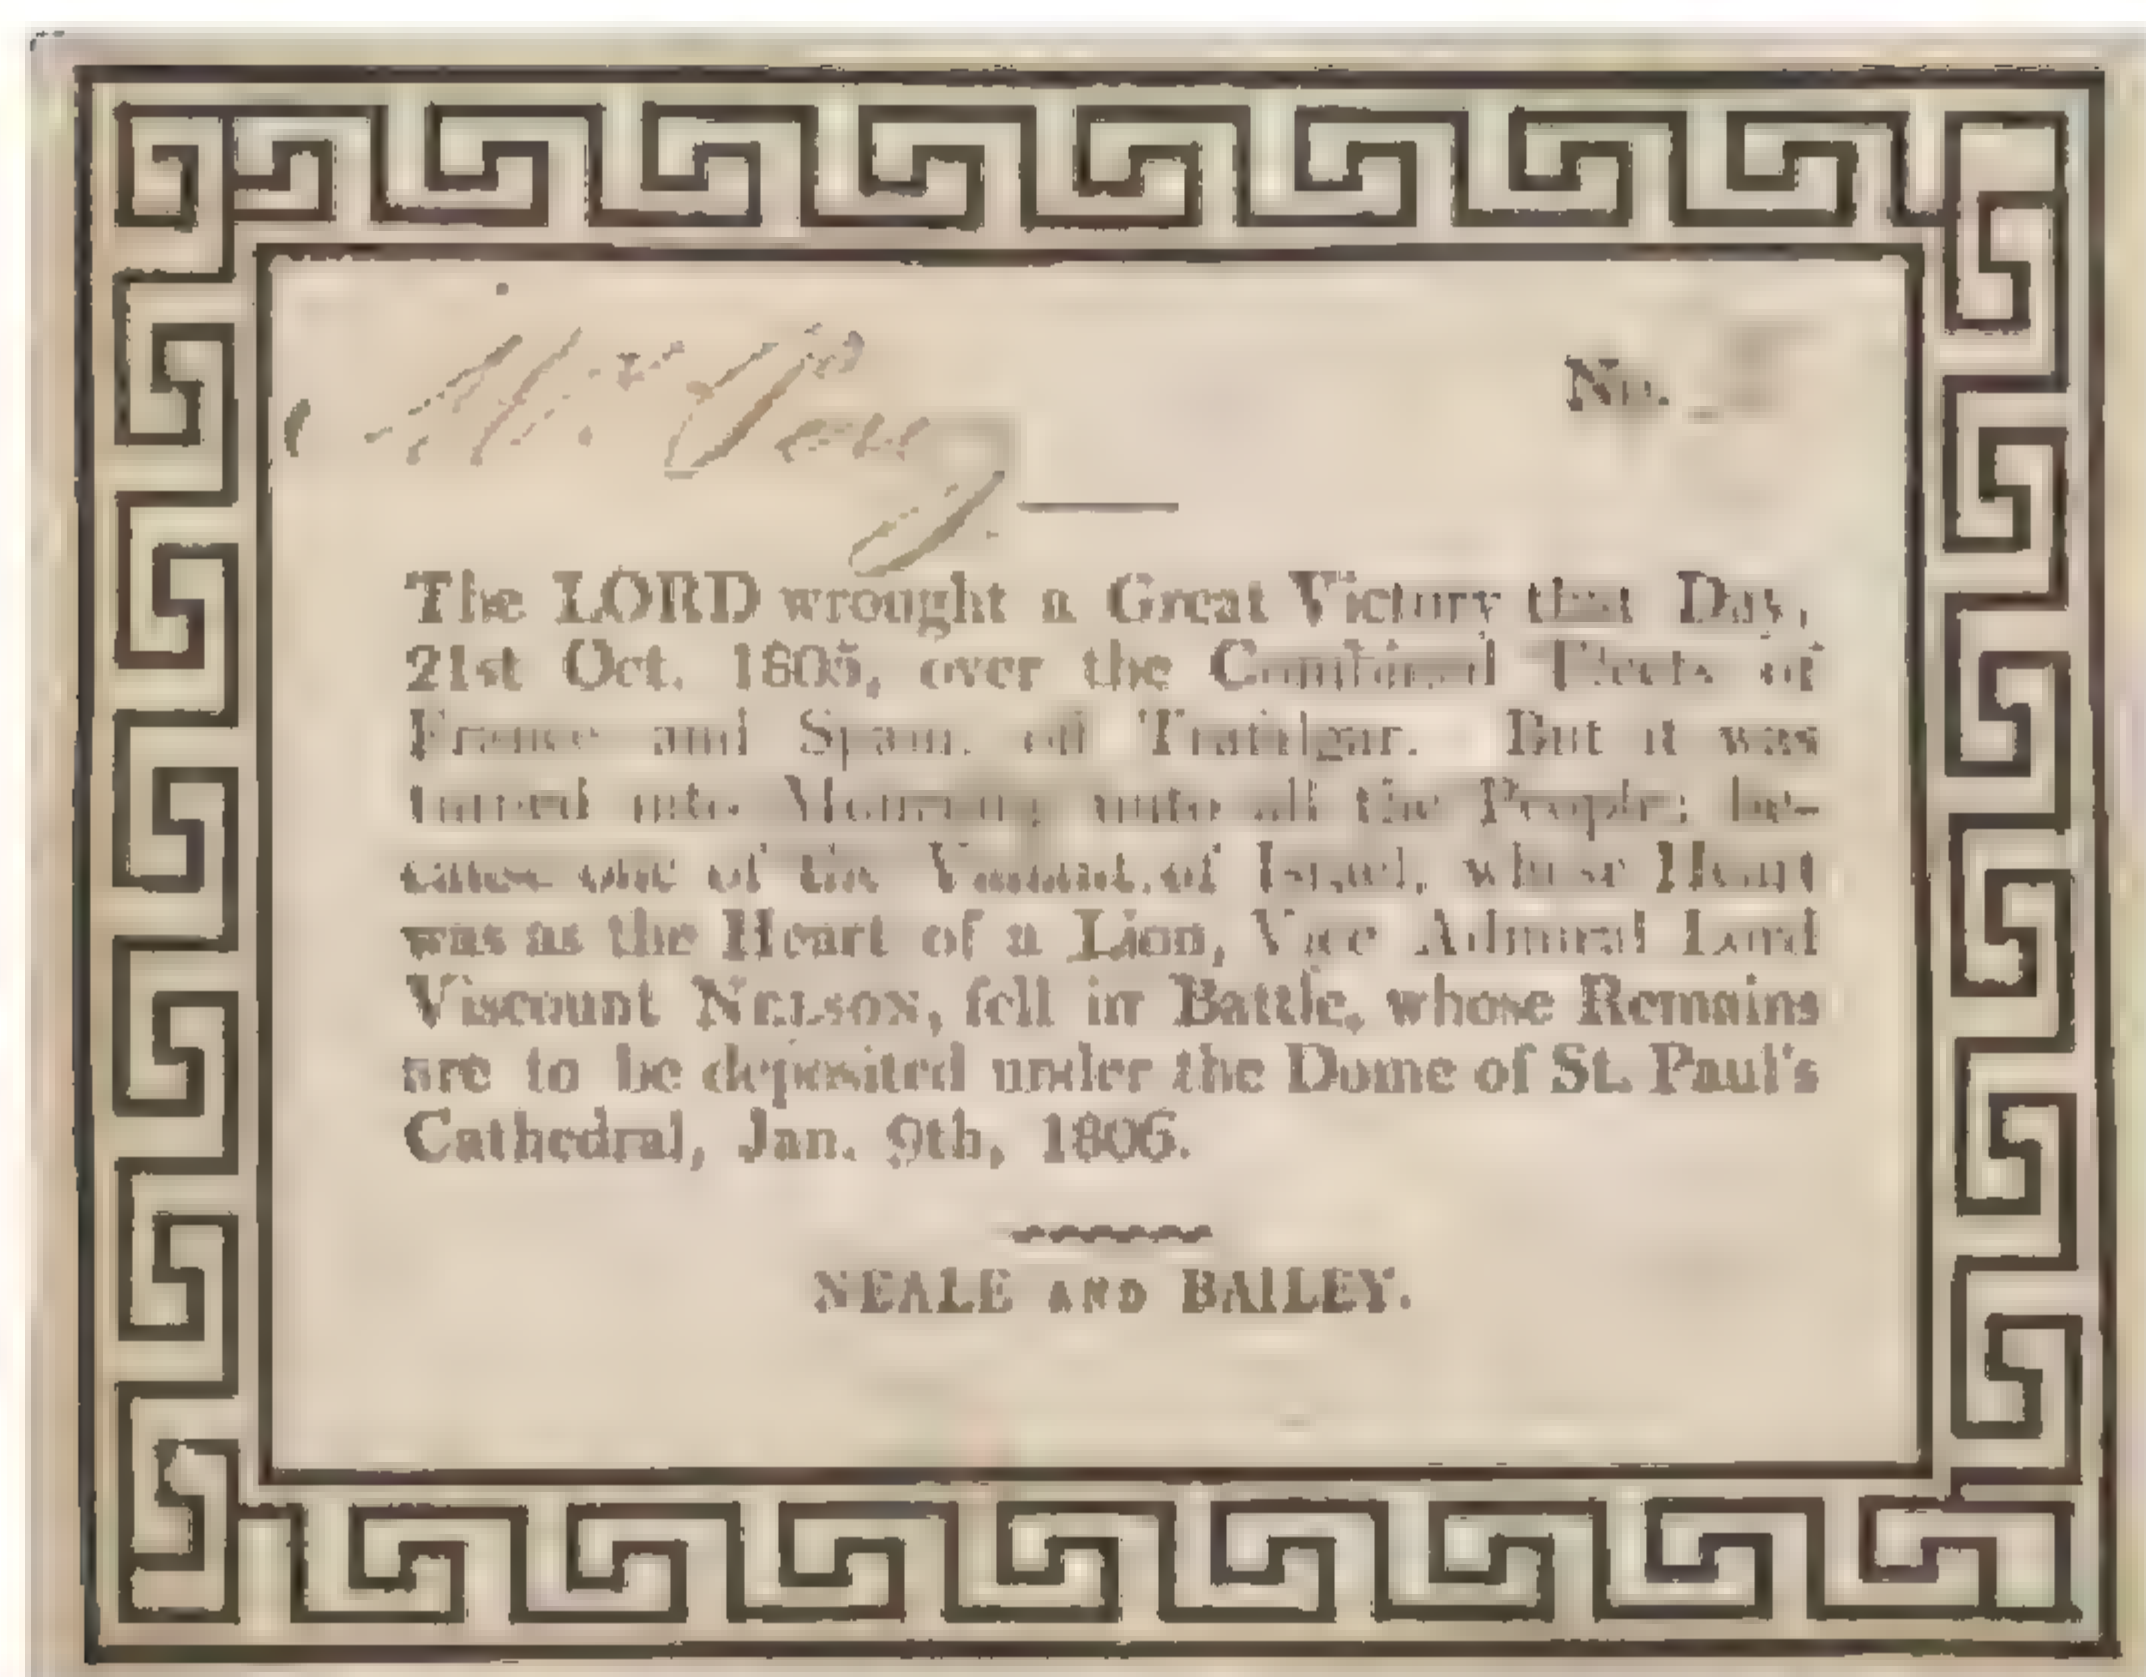 Mr
No.
The LORD wrought a Great Victory that Day,
21st Oct. 1805, over the Combined Fleets of
France and Spain, off Trafalgar. But it was
turned into Mourning unto all the People; be-
cause one of the Valiant of Israel, whose Heart
was as the Heart of a Lion, Vice Admiral Lord
Viscount NELSON, fell in Battle, whose Remains
are to be deposited under the Dome of St. Paul's
Cathedral, Jan. 9th, 1806.
NEALE AND BAILEY.